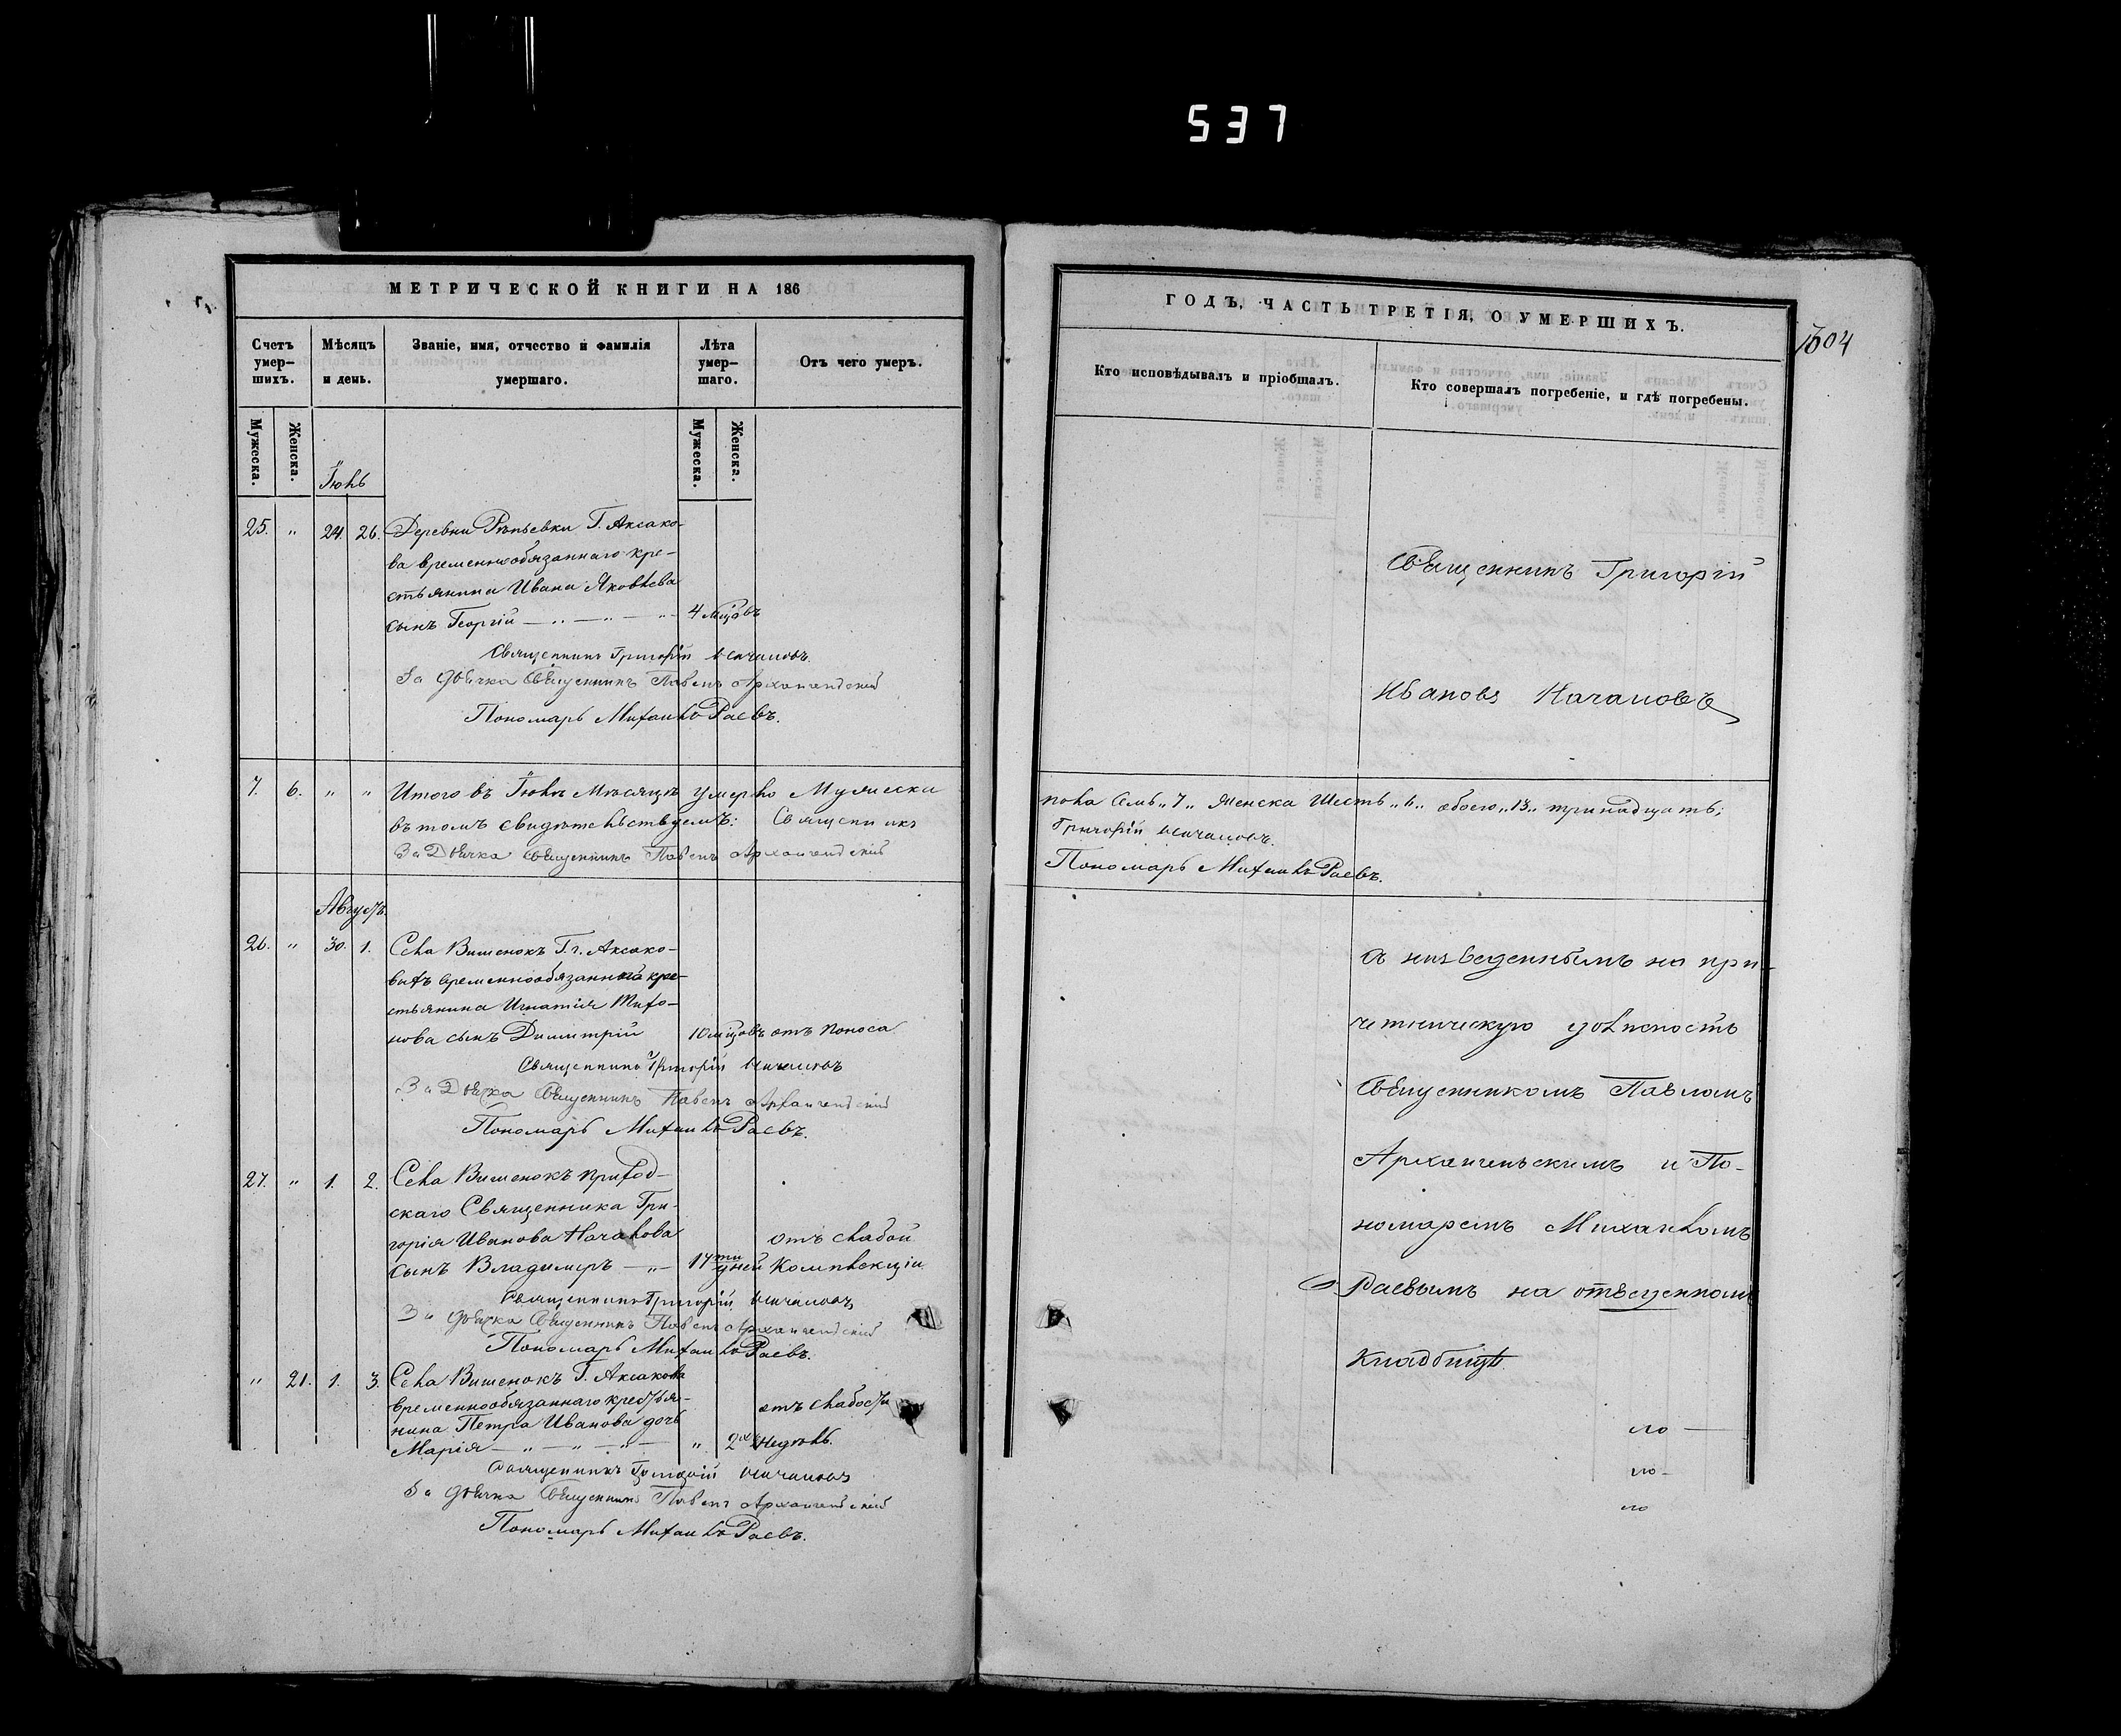 537
МЕТРИЧЕСКОЙ КНИГИ НА 186
Счетъ умер-
шихъ.
Мѣсяцъ
и день.
Званіе, имя, отчество и фамилія
умершаго.
Лѣта
умер-
шаго.
Отъ чего умеръ.
Мужеска.
Женска.
Іюль
Мужеска.
Женска.
25. " 24. 26. Деревни Репьевки Г. Аксако-
ва временнообязаннаго кре-
стьянина Ивана Яковлева
сынъ Георгій 4 мцовъ
Священникъ Григорій Началовъ.
За Дьячка Священникъ Павелъ Архангельскій
Пономарь Михаилъ Раевъ.
7. 6. " " Итого въ Іюлѣ Мѣсяцѣ умерло Мужески
въ томъ свидѣтельствуемъ: Священникъ
За Дьячка Священникъ Павелъ Архангельскій
Августъ.
26. " 30. 1. Села Вишенокъ Г.г. Аксако-
выхъ временнообязанный кре-
стьянина Игнатія Тихо-
нова сынъ Димитрій 10 мцовъ отъ поноса
Священникъ Григорій Началовъ
За Дьячка Священникъ Павелъ Архангельскій
Пономарь Михаилъ Раевъ.
27. " 1. 2. Села Вишенокъ приход-
скаго Священника Гри-
горія Иванова Началова
сынъ Владимиръ 17ти дней отъ слабой комплекціи
Священникъ Григорій Началовъ
За Дьячка Священникъ Павелъ Архангельскій
Пономарь Михаилъ Раевъ.
" 21. 1. 3. Села Вишенокъ Г. Аксакова
временнообязаннаго крестья-
нина Петра Иванова дочь
Марія " 2хъ недѣль. отъ слабости
Священникъ Григорій Началовъ
За Дьячка Священникъ Павелъ Архангельскій
Пономарь Михаилъ Раевъ.
ГОДЪ, ЧАСТЬ ТРЕТІЯ, О УМЕРШИХЪ.
604
Кто исповѣдывалъ и пріобщалъ.
Кто совершалъ погребеніе, и гдѣ погребены.
Священникъ Григорій
Ивановъ Началовъ
пола семь "7" женска шесть "6" обоего "13" тринадцать;
Григорій Началовъ.
Пономарь Михаилъ Раевъ.
съ низведеннымъ на при-
четническую должность
Священникомъ Павломъ
Архангельскимъ и По-
номаремъ Михаиломъ
Раевымъ на отведенномъ
кладбищѣ.
ло
ло
ло